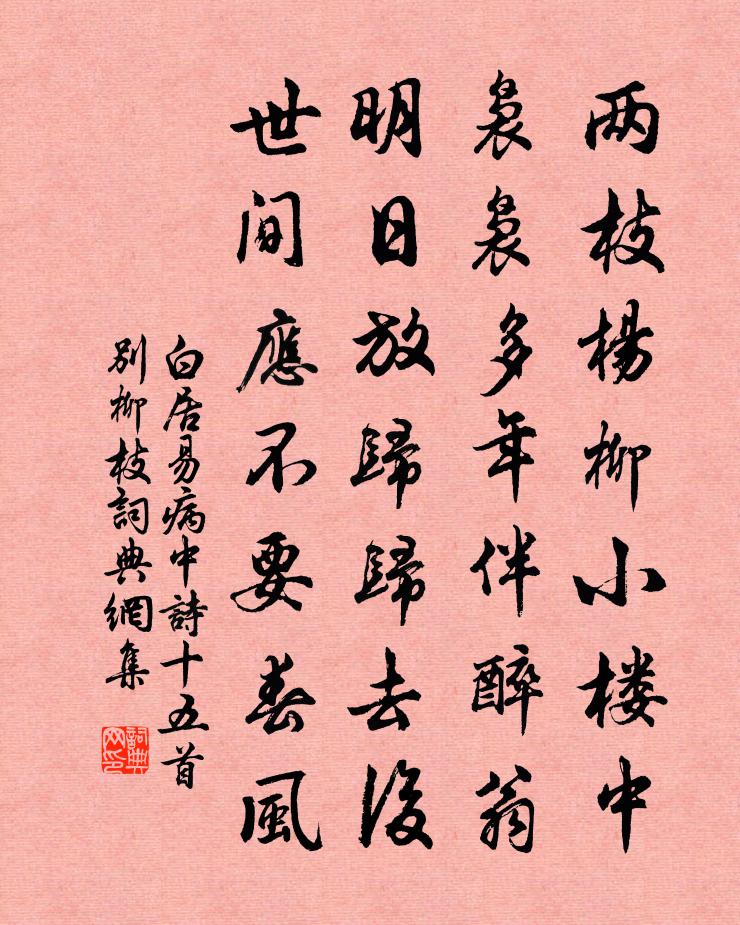 两枝楊柳小楼中
袅袅多年伴醉翁
明日放歸歸去後
世间應不要春風
白居易病中詩十五首
别柳枝詞典網集
詞典
网印